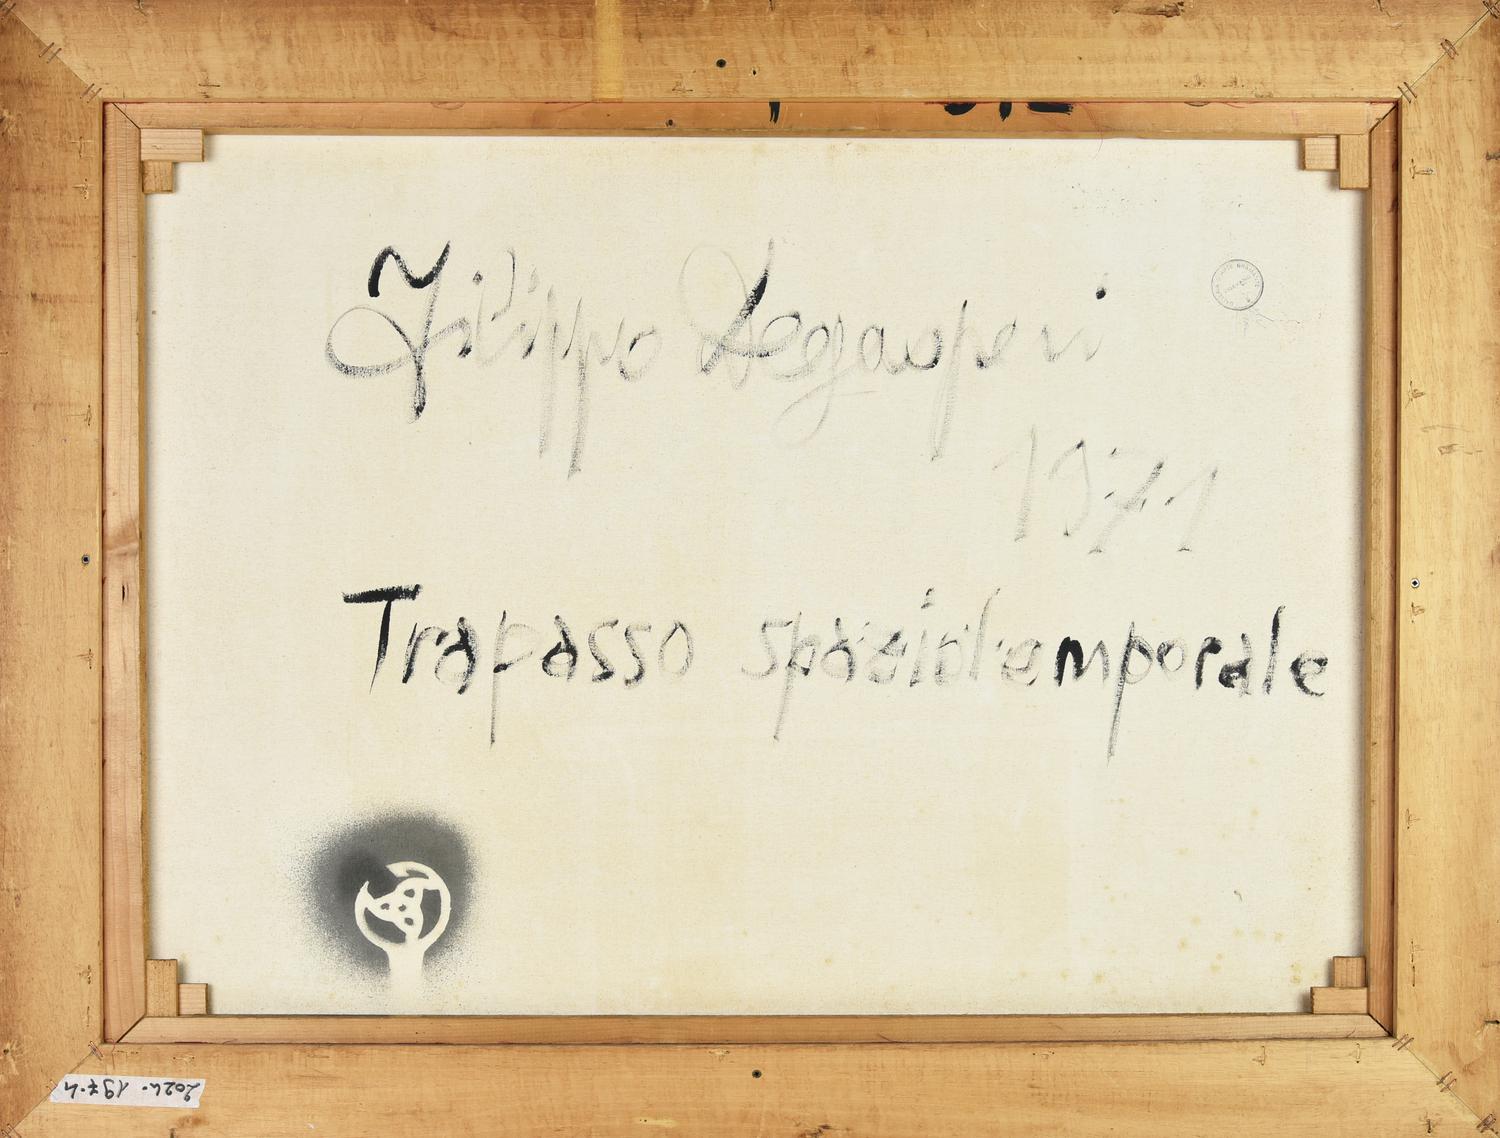 Filippo Degasperi
1971
Trapasso spaziotemporale
2024. 197.4